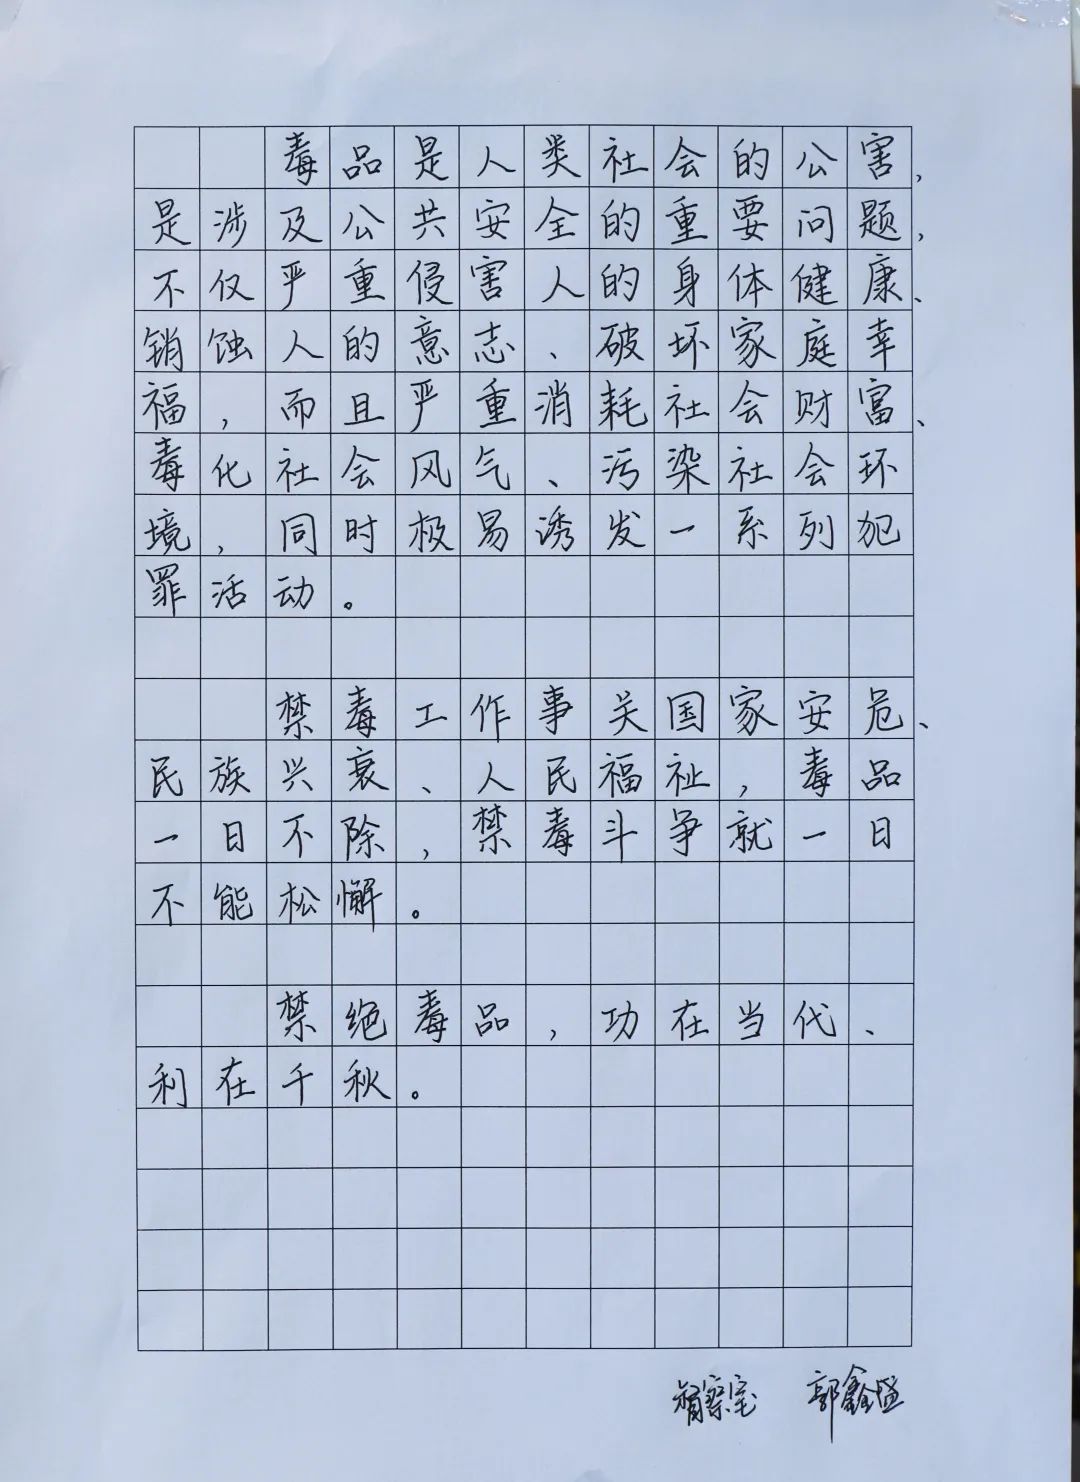 毒品是人类社会的公害，
是涉及公共安全的重要问题，
不仅严重侵害人的身体健康、
销蚀人的意志、破坏家庭幸
福，而且严重消耗社会财富、
毒化社会风气、污染社会环
境，同时极易诱发一系列犯
罪活动。
禁毒工作事关国家安危、
民族兴衰、人民福祉，毒品
一日不除，禁毒斗争就一日
不能松懈。
禁绝毒品，功在当代、
利在千秋。
督察室 郭鑫盛